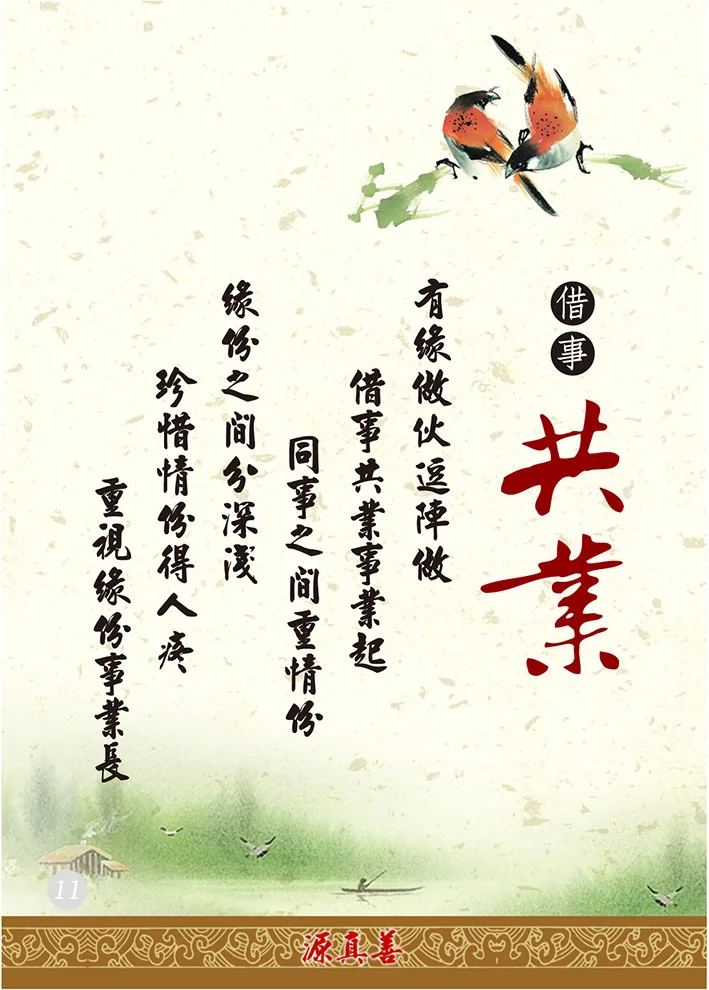 借事
共業
有緣做伙逗陣做
借事共業事業起
同事之間重情份
緣份之間分深淺
珍惜情份得人疼
重視緣份事業長
11
源真善